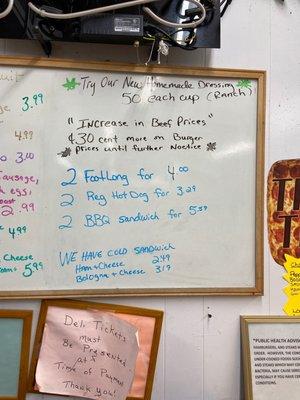 Try Our New Homemade Dressing
50 each cup (Ranch)
"Increase in Beef Prices"
¢30 cent more on Burger
prices until further Noctice
2 FootLong for 4.00
2 Reg Hot Dog for 3.29
2 BBQ sandwich for 5.59
WE HAVE COLD SANDWICH
Ham+Cheese 2.49
Bologna+Cheese 3.19
3.99
4.99
3.00
Sausage,
egg,
2.99
4.99
Cheese
5.99
Deli Tickets
must
Be Presented
at
Time of Payment
Thank You!
"PUBLIC HEALTH ADVISO
HAMBURGERS, AND STEAKS W
ORDER. HOWEVER, THE CONS
UNDER-COOKED FOODS SUCH
AND STEAKS WHICH MAY
BACTERIA, MAY CAUSE SER
ESPECIALLY IF YOU HAVE CER
CONDITIONS."